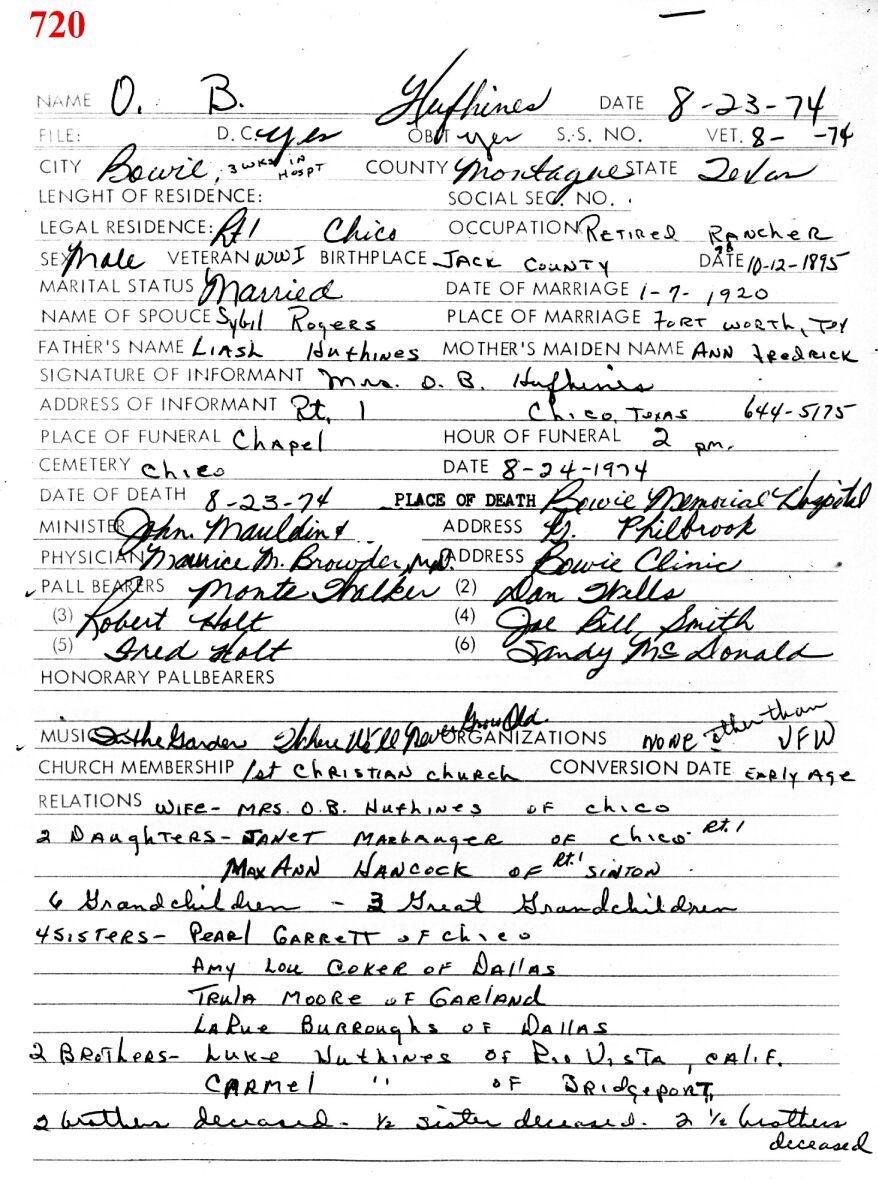 720
NAME O. B. Hufhines DATE 8-23-74
FILE: D.C. yes OBIT yes S.S. NO. VET. 8- -74
CITY Bowie, 3 WKS IN HOSPT COUNTY Montague STATE Texas
LENGHT OF RESIDENCE: SOCIAL SEC. NO.
LEGAL RESIDENCE: Rt 1 Chico OCCUPATION RETIRED RANCHER
SEX Male VETERAN WWI BIRTHPLACE JACK COUNTY DATE 10-12-1895
MARITAL STATUS Married DATE OF MARRIAGE 1-7-1920
NAME OF SPOUCE Sybil Rogers PLACE OF MARRIAGE FORT WORTH, TEX
FATHER'S NAME LIASH Hufhines MOTHER'S MAIDEN NAME ANN FREDRICK
SIGNATURE OF INFORMANT Mrs. O. B. Hufhines
ADDRESS OF INFORMANT Rt. 1 Chico, TEXAS 644-5175
PLACE OF FUNERAL Chapel HOUR OF FUNERAL 2 pm.
CEMETERY Chico DATE 8-24-1974
DATE OF DEATH 8-23-74 PLACE OF DEATH Bowie Memorial Hospital
MINISTER John Mauldin & ADDRESS Philbrook
PHYSICIAN Maurice M. Browder, M.D. ADDRESS Bowie Clinic
PALL BEARERS Monte Walker (2) Dan Wells
(3) Robert Holt (4) Joe Bill Smith
(5) Fred Holt (6) Sandy McDonald
HONORARY PALLBEARERS
MUSIC In the Garden Where We'll Never Grow Old ORGANIZATIONS NONE other than VFW
CHURCH MEMBERSHIP 1st CHRISTIAN CHURCH CONVERSION DATE EARLY AGE
RELATIONS WIFE- MRS. O.B. Hufhines OF Chico
2 DAUGHTERS- JANET MARBANGER OF Chico Rt. 1
MAX ANN HANCOCK OF Rt. 1 SINTON
6 Grandchildren - 3 Great Grandchildren
4 SISTERS- PEARL GARRETT OF Chico
AMY LOU COKER OF DALLAS
TRULA MOORE OF GARLAND
LARUE BURROUGHS OF DALLAS
2 BROTHERS- LUKE Hufhines OF RIO VISTA, CALIF.
CARMEL " OF BRIDGEPORT,
2 brothers deceased- ½ sister deceased. 2 ½ brothers
deceased